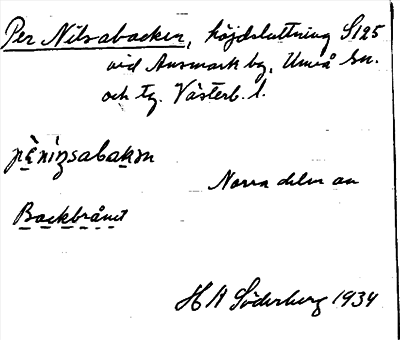 Per Nilsabacken, höjdsluttning S125
vid Ansmark by, Umeå sn.
och tg. Västerb. l.
Norra delen av
Backbrånet
H A Söderberg 1934